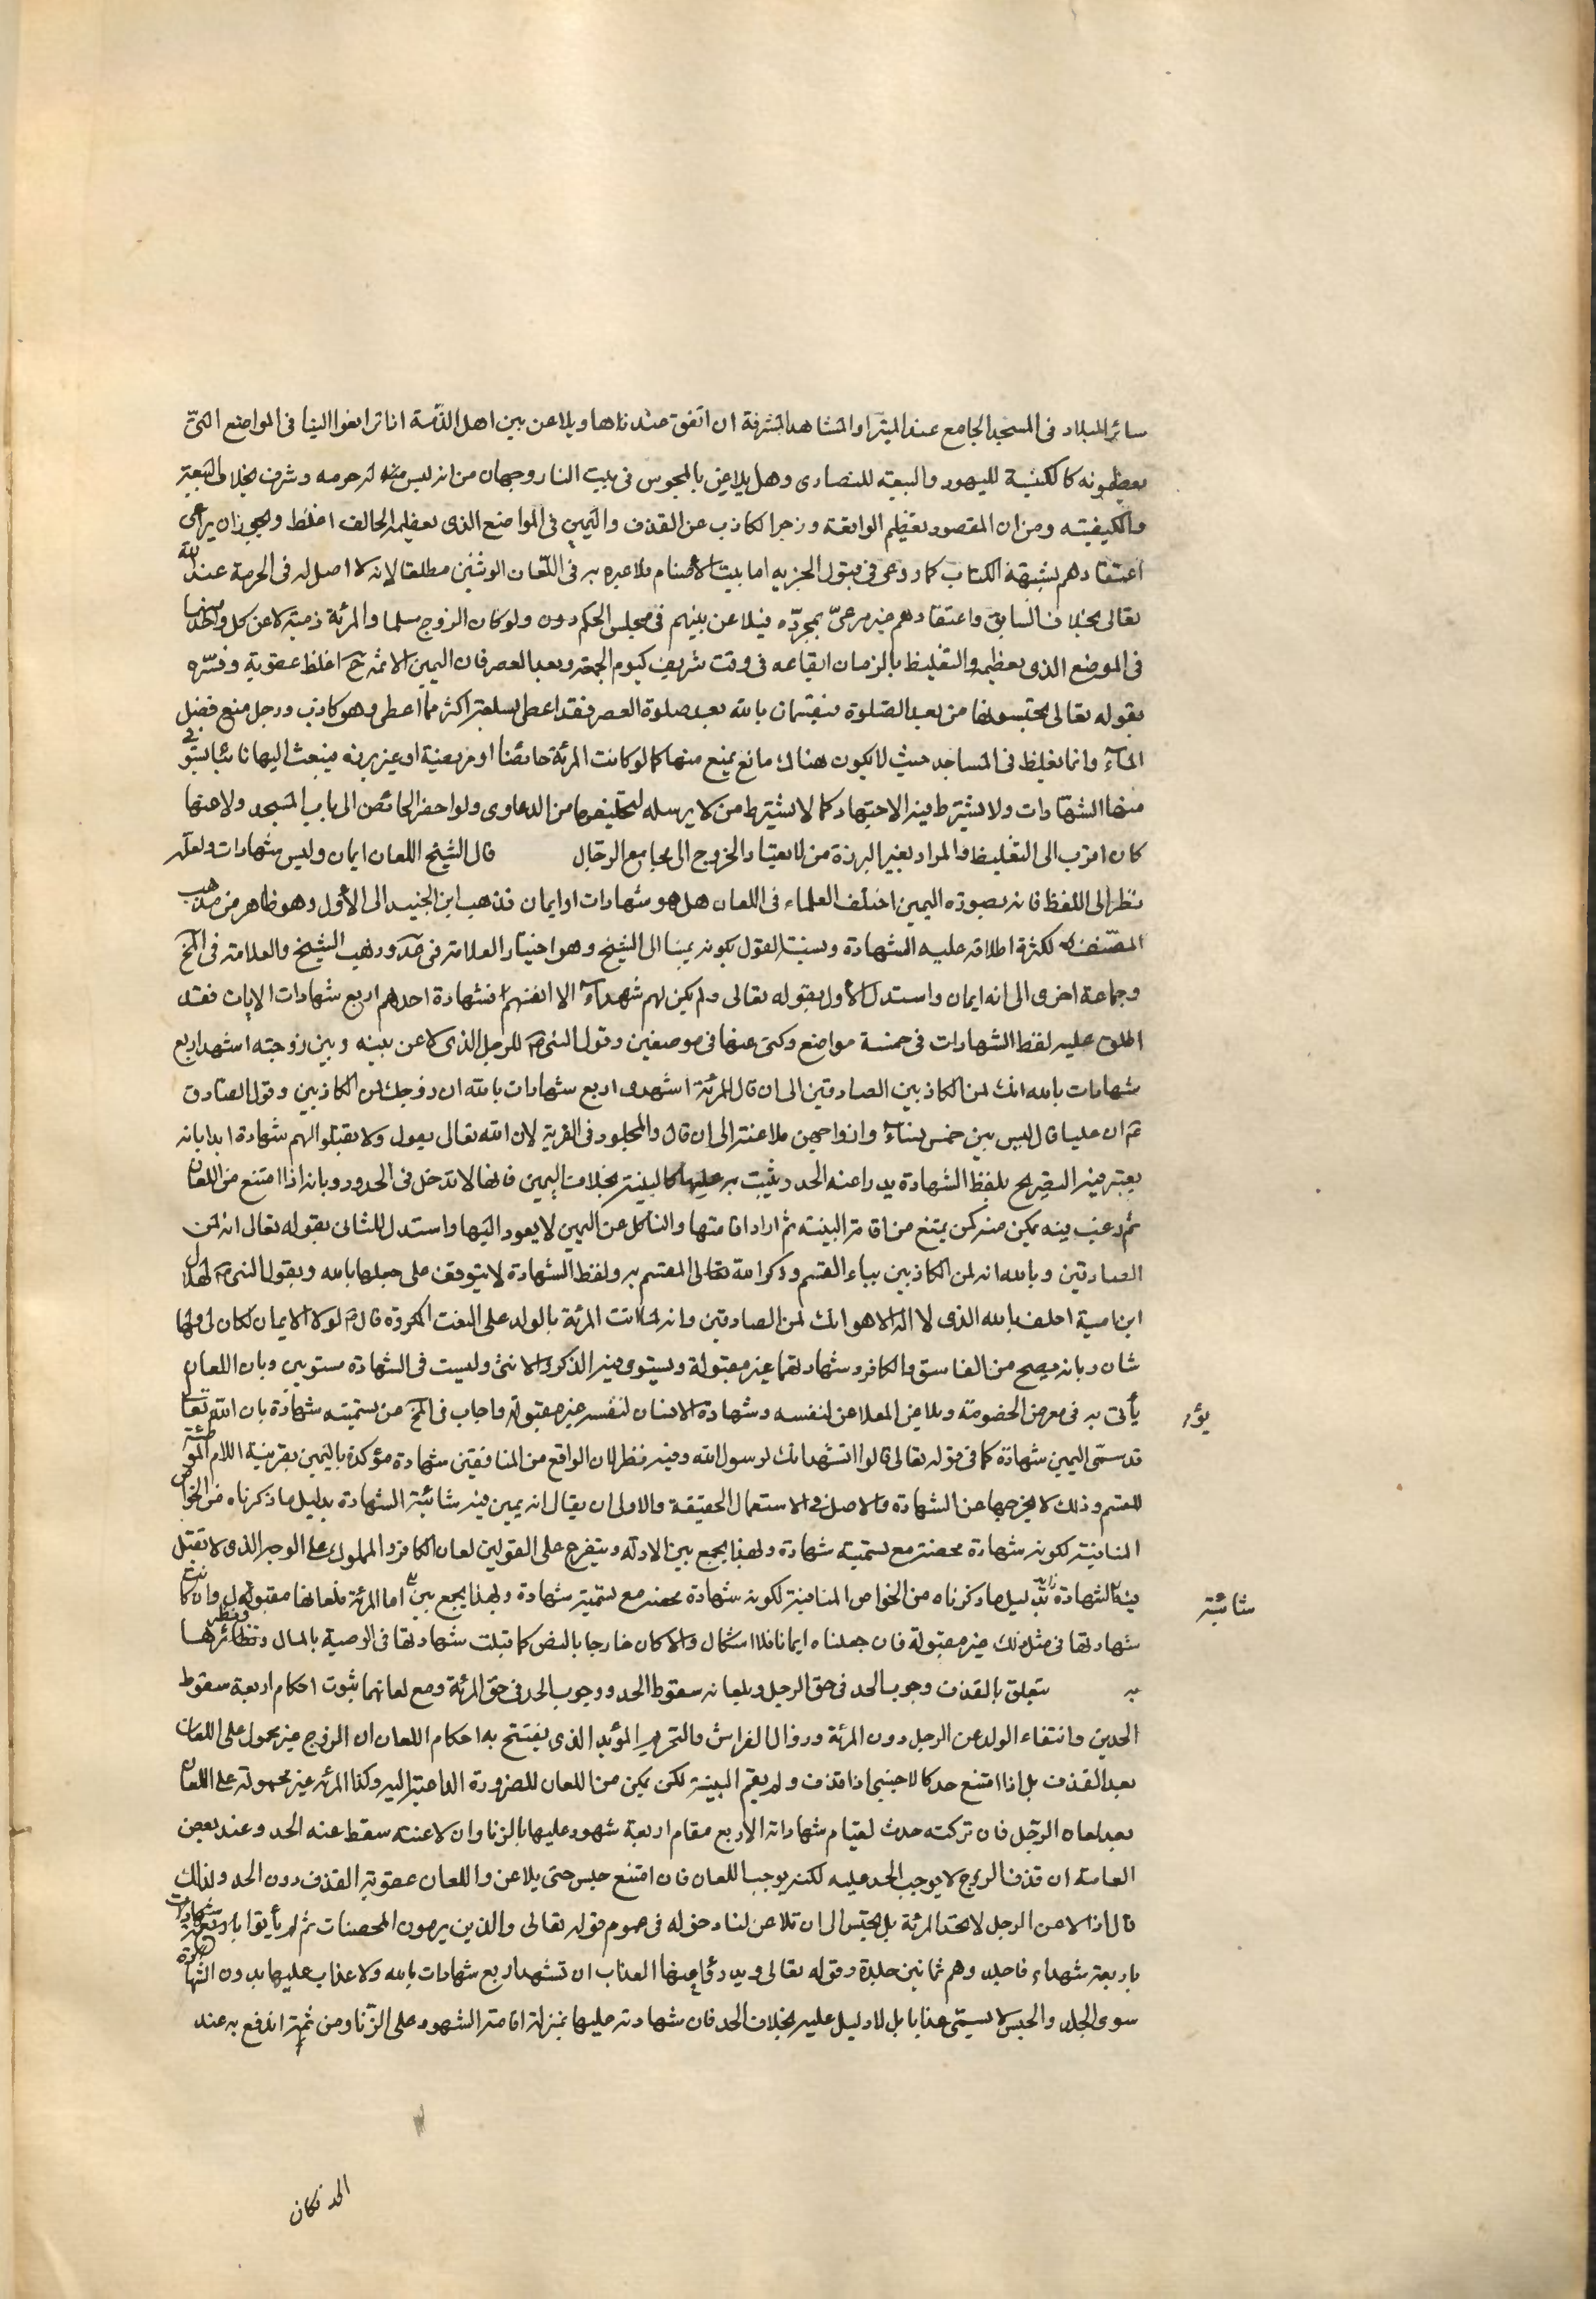 سائر البلاد فى المسجد الجامع عند المنبر او المشاهد المشرفة ان اتفق عندناها ويلاعن بين اهل الذمّة اذا ترافعوا الينا فى المواضع التىّ
يعظمونه كالكنيسة لليهود والبيعة للنصارى وهل يلاعن بالمجوس فى بيت النار وجهان من انه ليس له حرمه وشرف بخلاف البيعة
والكنيسة ومن ان المقصود تعظيم الواقعة وزجر الكاذب عن القذف واليمين فى المواضع الذى يعظمه الحالف اغلظ ويجوز ان يراعى
اعتقادهم بشبهة الكتاب كما روعى فى قبول الجزيه اما بيت الأصنام فلا عبره به فى اللعان الوثنين مطلقا لانه لا اصل له فى الحرمة عند الله
تعالى بخلاف السابق واعتقادهم غير مرعىّ بمجرّده فيلاعن بينهم فى مجلس الحكم دون ولو كان الزوج مسلما والمرئة ذمية لاعن كل واحد منهما
فى الموضع الذى يعظمه والتغليظ بالزمان ايقاعه فى وقت شريف كيوم الجمعة وبعد العصر فان اليمين الاثمة ح اغلظ عقوبة وفسّره
بقوله تعالى تحبسونهما من بعد الصّلوة فيقسمان بالله بعد صلوة العصر فقد اعطى بسلعته اكثر مما اعطى وهو كاذب ورجل منع فضل
المآء وانما يغلظ فى المساجد حيث لا يكون هناك مانع يمنع منها كما لو كانت المرئة حائضا او مريضة او غير برزة فيبعث اليها نائبا يستوفى
منها الشهادات ولا يشترط فيه الاجتهاد كما لا يشترط من لا يرسله لتحليفها من الدعاوى ولو احضر الحائض الى باب المسجد ولاعنها
كان اقرب الى التغليظ والمراد بغير البرزة من لا يعتاد الخروج الى مجامع الرجال قال الشيخ اللعان ايمان وليس شهادات ولعله
نظر الى اللفظ فانه بصورة اليمين اختلف العلماء فى اللعان هل هو شهادات او ايمان فذهب ابن الجنيد الى الأول وهو ظاهر من مذهب
المصنف لكثرة اطلاقه عليه الشهادة ونسبة القول بكونه يمينا الى الشيخ وهو اختيار العلامة فى عد وذهب الشيخ والعلامة فى الخ
وجماعة اخرى الى انه ايمان واستدل الأول بقوله تعالى ولم يكن لهم شهدآء الا انفسهم فشهادة احدهم اربع شهادات الايات فقد
اطلق عليه لفظ الشهادات فى خمسة مواضع وكنى عنها فى موضعين وقول النبى ص للرجل الذى لاعن بينه وبين زوجته اشهد اربع
شهادات بالله انك لمن الكاذبين الصادقين الى ان قال للمرئة اشهدى اربع شهادات بالله ان زوجك لمن الكاذبين وقول الصادق
ع ان عليا قال ليس بين خمس نسآء وازواجهن ملاعنة الى ان قال والمجلود فى الفرية لان الله تعالى يقول ولا تقبلوا لهم شهادة ابدا بانه
يعتبر فيه التصريح بلفظ الشهادة يدرا عنه الحد ويثبت به عليها كالبينة بخلاف اليمين فانها لا تدخل فى الحدود وبانه اذا امتنع من اللعان
ثم رغب فيه يمكن منه كمن يمتنع من اقامة البينة ثم اراد اقامتها والناكل عن اليمين لا يعود اليها واستدل للثانى بقوله تعالى انه لمن
الصادقين وبالله انه لمن الكاذبين بباء القسم وذكر الله تعالى المقسم به ولفظ الشهادة لا يتوقف على جعلها بالله وبقول النبى ص لهلال
ابن امية احلف بالله الذى لا اله الا هو انك لمن الصادقين وانه لما اتت المرئة بالولد على النعت المكروة قال ص لولا الايمان لكان لى ولها
شان وبانه يصح من الفاسق والكافر وشهادتهما غير مقبولة ويستوى فيه الذكر والانثى وليست فى الشهادة مستويين وبان اللعان
يأتى به فى معرض الخصومة ويلاعن الملاعن لنفسه وشهادة الانسان لنفسه غير مقبولة واجاب فى الخ عن تسميته شهادة بان الله تعا
يؤر
قد سمّى اليمين شهادة كما فى قوله تعالى قالوا نشهد انك لرسول الله وفيه نظر لان الواقع من المنافقين شهادة مؤكدة باليمين بقرينة اللام الموطئة
للقسم وذلك لا يخرجها عن الشهادة والاصل فى الاستعمال الحقيقة والاولى ان يقال انه يمين فيه شائبة الشهادة بدليل ما ذكرناه من الخواص
المنافية لكونه شهادة محضة مع تسميته شهادة ولهذا يجمع بين الادلة ويتفرع على القولين لعان الكافر والمملوك على الوجه الذى لا تقبل
فيه الشهادة بدليل ما ذكرناه من الخواص المنافية لكونه شهادة محضة مع تسميته شهادة ولهذا يجمع بين اما المرئة فلعانها مقبول وان كانت
شائبة
شهادتها فى مثل ذلك غير مقبولة فان جعلناه ايمانا فلا اشكال والا كان خارجا بالنص كما قبلت شهادتها فى الوصية بالمال ونظائرها
يه يتعلق بالقذف وجوب الحد فى حق الرجل وبلعانه سقوط الحد ووجوب الحد فى حق المرئة ومع لعانهما ثبوت احكام اربعة سقوط
الحدين وانتفاء الولد عن الرجل دون المرئة وزوال الفراش والتحريم المؤبد الذى يفتتح به احكام اللعان ان الزوج غير محمول على اللعان
بعد القذف بل اذا امتنع حد كالاجنبى اذا قذف ولم يقم البينة لكن يمكن من اللعان للضرورة الداعية اليه وكذا المرئة غير محمولة على اللعان
بعد لعان الرجل فان تركته حدت لقيام شهاداته الاربع مقام اربعة شهود عليها بالزنا وان لاعنته سقط عنه الحد وعند بعض
العامة ان قذف الزوج لا يوجب الحد عليه لكنه يوجب اللعان فان امتنع حبس حتى يلاعن واللعان عقوبة القذف دون الحد ولذلك
قال اذا لاعن الرجل لا تحد المرئة بل تحبس الى ان تلاعن لنا دخوله فى عموم قوله تعالى والذين يرمون المحصنات ثم لم يأتوا باربعة شهادات
باربعة شهداء فاجلدوهم ثمانين جلدة وقوله تعالى ويدرؤا عنها العذاب ان تشهد اربع شهادات بالله ولا عذاب عليها بدون الشهادة
سوى الجلد والحبس لا يسمّى عذابا بل لا دليل عليه بخلاف الحد فان شهادته عليها بمنزلة اقامة الشهود على الزنا ومن ثمة اندفع به عنه
الحد فكان